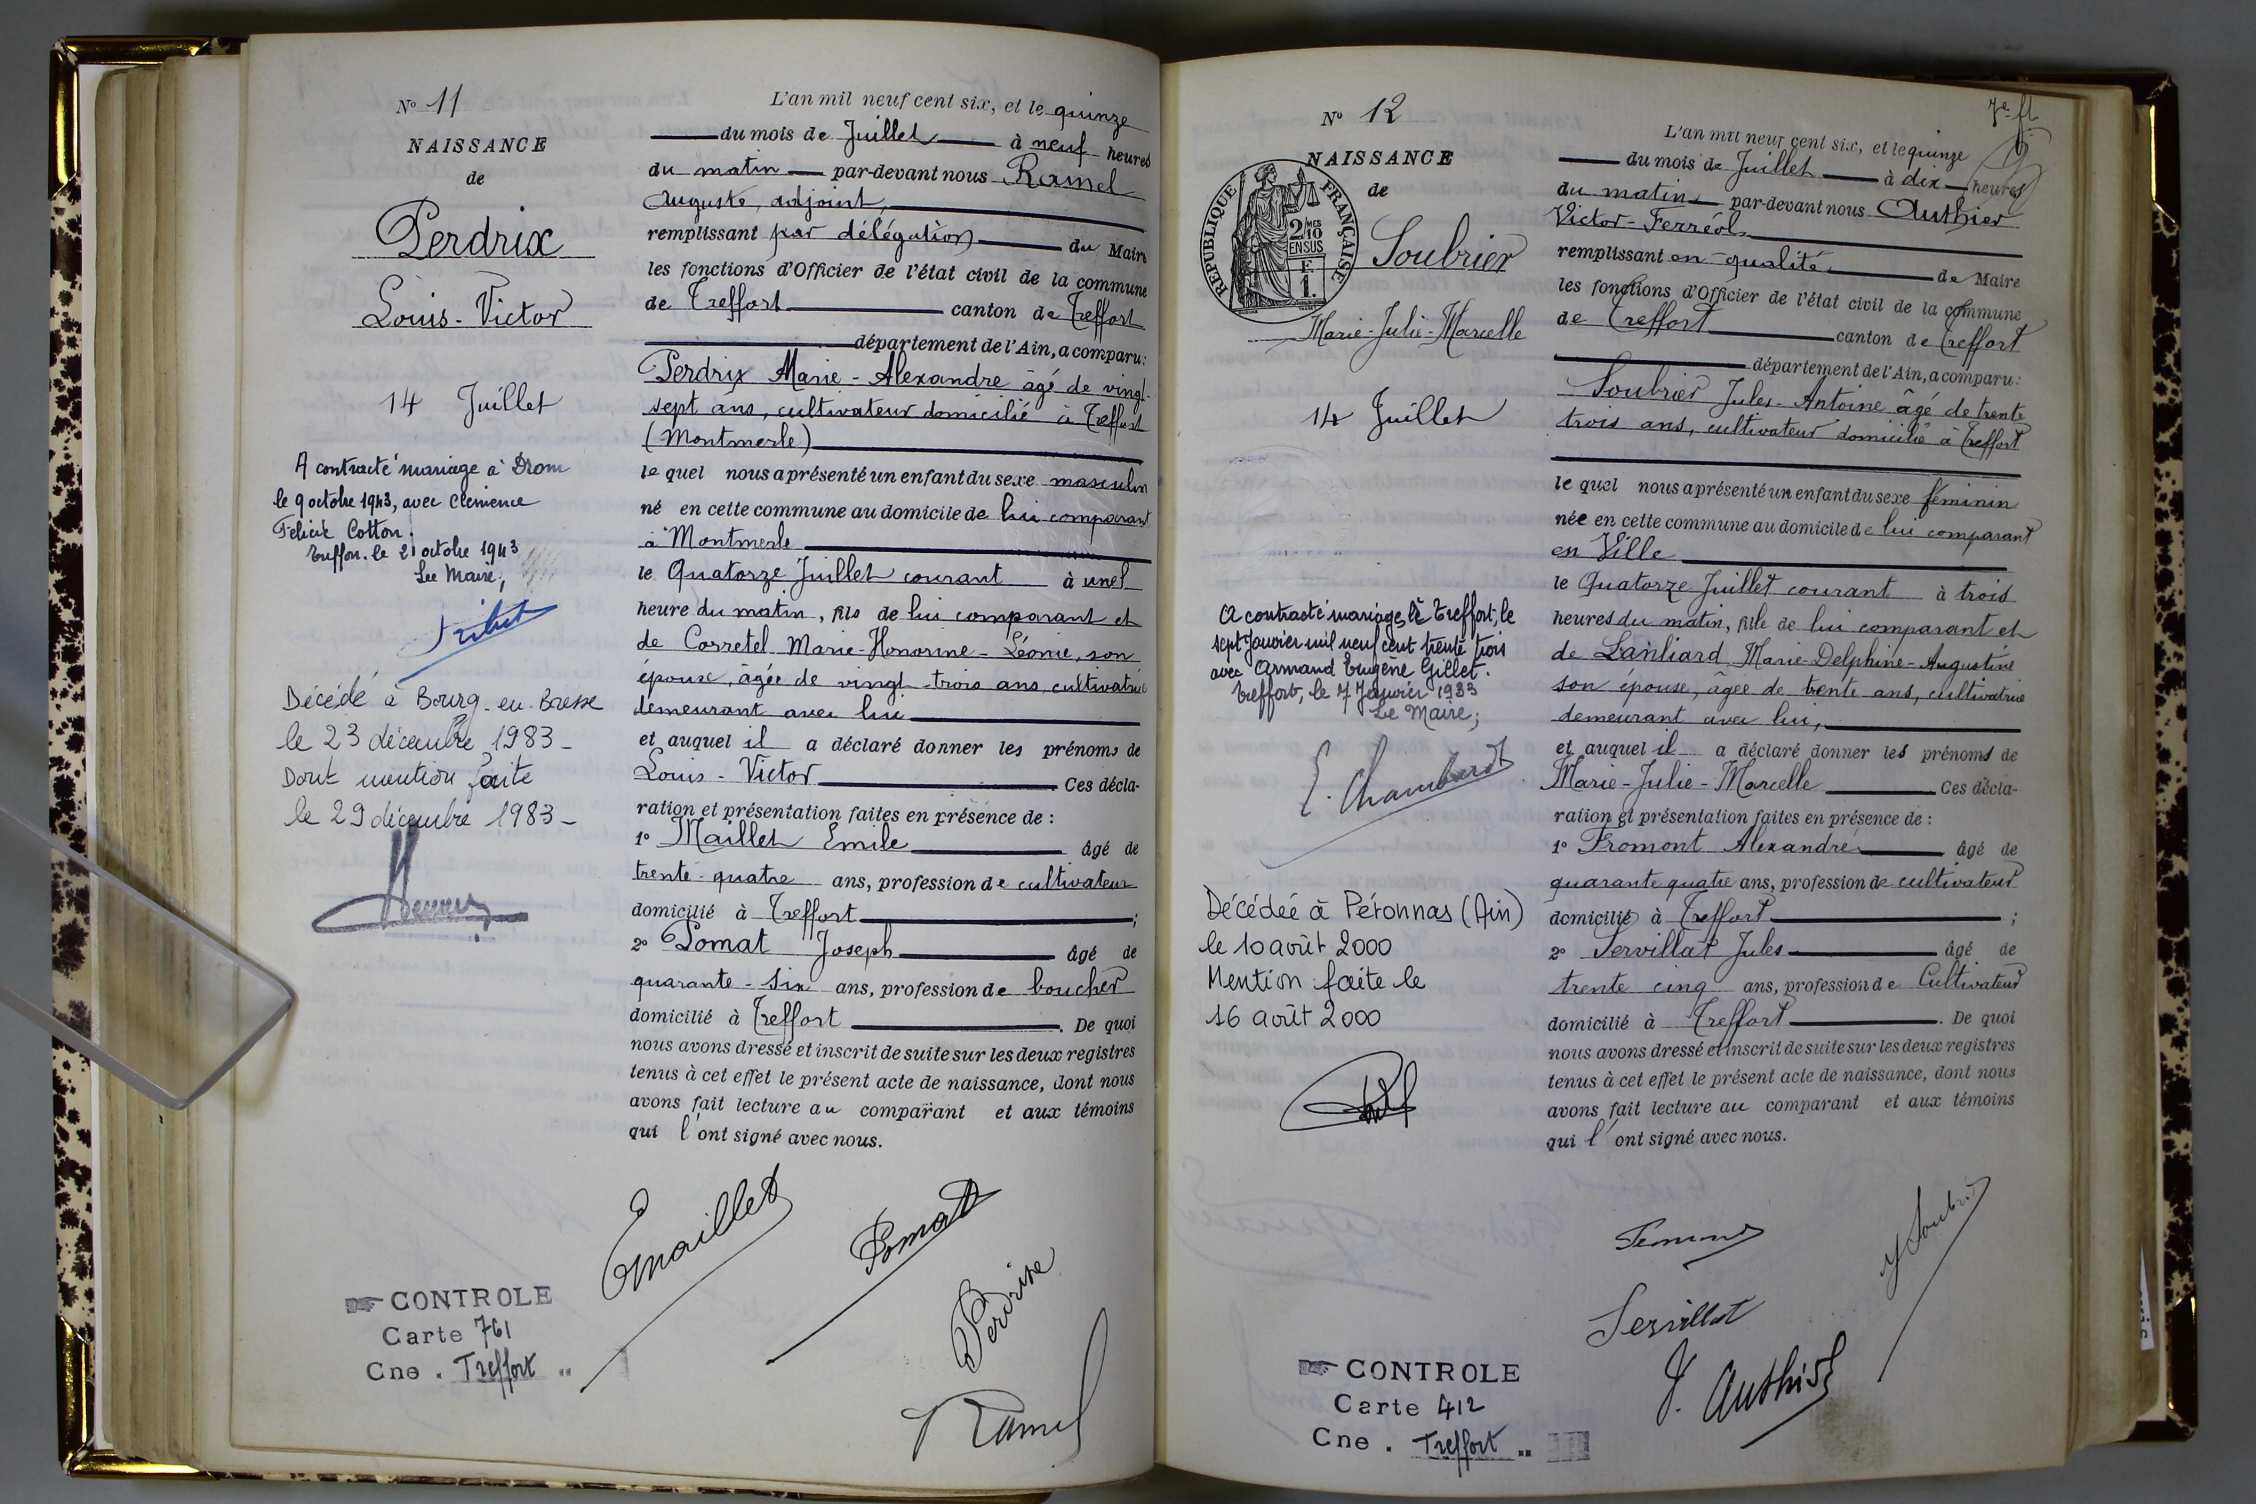 N° 11
NAISSANCE
de
Perdrix
Louis-Victor
14 Juillet
A contracté mariage à Drom
le 9 octobre 1943, avec Clémence
Félicie Cotton.
Treffort. le 21 octobre 1943
Le Maire,
Décédé à Bourg-en-Bresse
le 23 décembre 1983-
Dont mention faite
le 29 décembre 1983-
CONTROLE
Carte 761
Cne. Treffort
L'an mil neuf cent six, et le quinze
du mois de Juillet à neuf heures
du matin par-devant nous Ramel
Auguste, adjoint,
remplissant par délégation du Maire
les fonctions d'Officier de l'état civil de la commune
de Treffort canton de Treffort
département de l'Ain, a comparu:
Perdrix Marie-Alexandre âgé de vingt-
sept ans, cultivateur domicilié à Treffort
(Montmerle)
le quel nous a présenté un enfant du sexe masculin
né en cette commune au domicile de lui comparant
à Montmerle
le Quatorze Juillet courant à une
heure du matin, fils de lui comparant et
de Corretel Marie-Honorine-Léonie, son
épouse, âgée de vingt-trois ans, cultivatrice
demeurant avec lui
et auquel il a déclaré donner les prénoms de
Louis-Victor Ces décla-
ration et présentation faites en présence de :
1° Maillet Emile âgé de
trente-quatre ans, profession de cultivateur
domicilié à Treffort ;
2° Pomat Joseph âgé de
quarante-six ans, profession de boucher
domicilié à Treffort . De quoi
nous avons dressé et inscrit de suite sur les deux registres
tenus à cet effet le présent acte de naissance, dont nous
avons fait lecture au comparant et aux témoins
qui l'ont signé avec nous.
Emaillet
Pomat
Perdrix
Ramel
N° 12
NAISSANCE
de
REPUBLIQUE FRANÇAISE
2 MES
10
EN SUS
F.
1.
Soubrier
Marie-Julie-Marcelle
14 Juillet
A contracté mariage à Treffort, le
sept Janvier mil neuf cent trente trois
avec Armand Eugène Gillet.
Treffort, le 7 Janvier 1933
Le Maire;
E. Chambard
Décédée à Péronnas (Ain)
le 10 août 2000
Mention faite le
16 août 2000
CONTROLE
Carte 412
Cne. Treffort
7e ft
L'an mil neuf cent six, et le quinze
du mois de Juillet à dix heures
du matin par-devant nous Authier
Victor-Ferréol
remplissant en qualité de Maire
les fonctions d'Officier de l'état civil de la commune
de Treffort canton de Treffort
département de l'Ain, a comparu:
Soubrier Jules-Antoine âgé de trente
trois ans, cultivateur domicilié à Treffort
le quel nous a présenté un enfant du sexe féminin
née en cette commune au domicile de lui comparant
en Ville
le Quatorze Juillet courant à trois
heures du matin, fille de lui comparant et
de Lanliard Marie-Delphine-Augustine
son épouse, âgée de trente ans, cultivatrice
demeurant avec lui,
et auquel il a déclaré donner les prénoms de
Marie-Julie-Marcelle Ces décla-
ration et présentation faites en présence de :
1° Fromont Alexandre âgé de
quarante quatre ans, profession de cultivateur
domicilié à Treffort ;
2° Servillat Jules âgé de
trente cinq ans, profession de Cultivateur
domicilié à Treffort . De quoi
nous avons dressé et inscrit de suite sur les deux registres
tenus à cet effet le présent acte de naissance, dont nous
avons fait lecture au comparant et aux témoins
qui l'ont signé avec nous.
Servillat
V. Authier